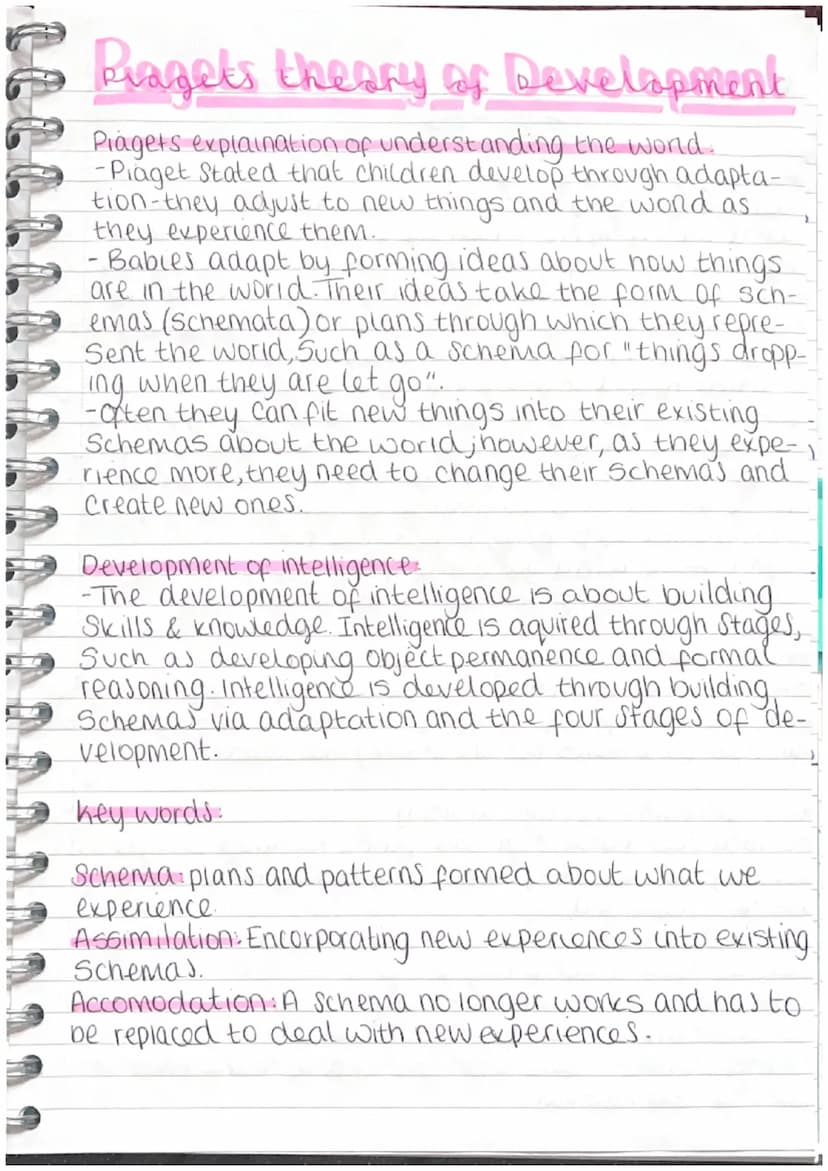 Piagets theory of Development
Piagets explaination of understanding the world.
-Piaget stated that children develop through adapta-
tion-they adjust to new things and the world as
they experience them.
- Babies adapt by forming ideas about how things
are in the world. Their ideas take the form of sch-
emas (schemata) or plans through which they repre-
sent the world, such as a schema for "things dropp-
ing when they are let go".
-Often they can fit new things into their existing
schemas about the world; however, as they expe-
rience more, they need to change their schemas and
create new ones.
Development of intelligence:
-The development of intelligence is about building
skills & knowledge. Intelligence is aquired through stages,
such as developing object permanence and formal
reasoning. Intelligence is developed through building
schemas via adaptation and the four stages of de-
velopment.
Key words:
Schema: plans and patterns formed about what we
experience.
Assimilation: Encorporating new experiences into existing
schemas.
Accomodation: A schema no longer works and has to
be replaced to deal with new experiences.